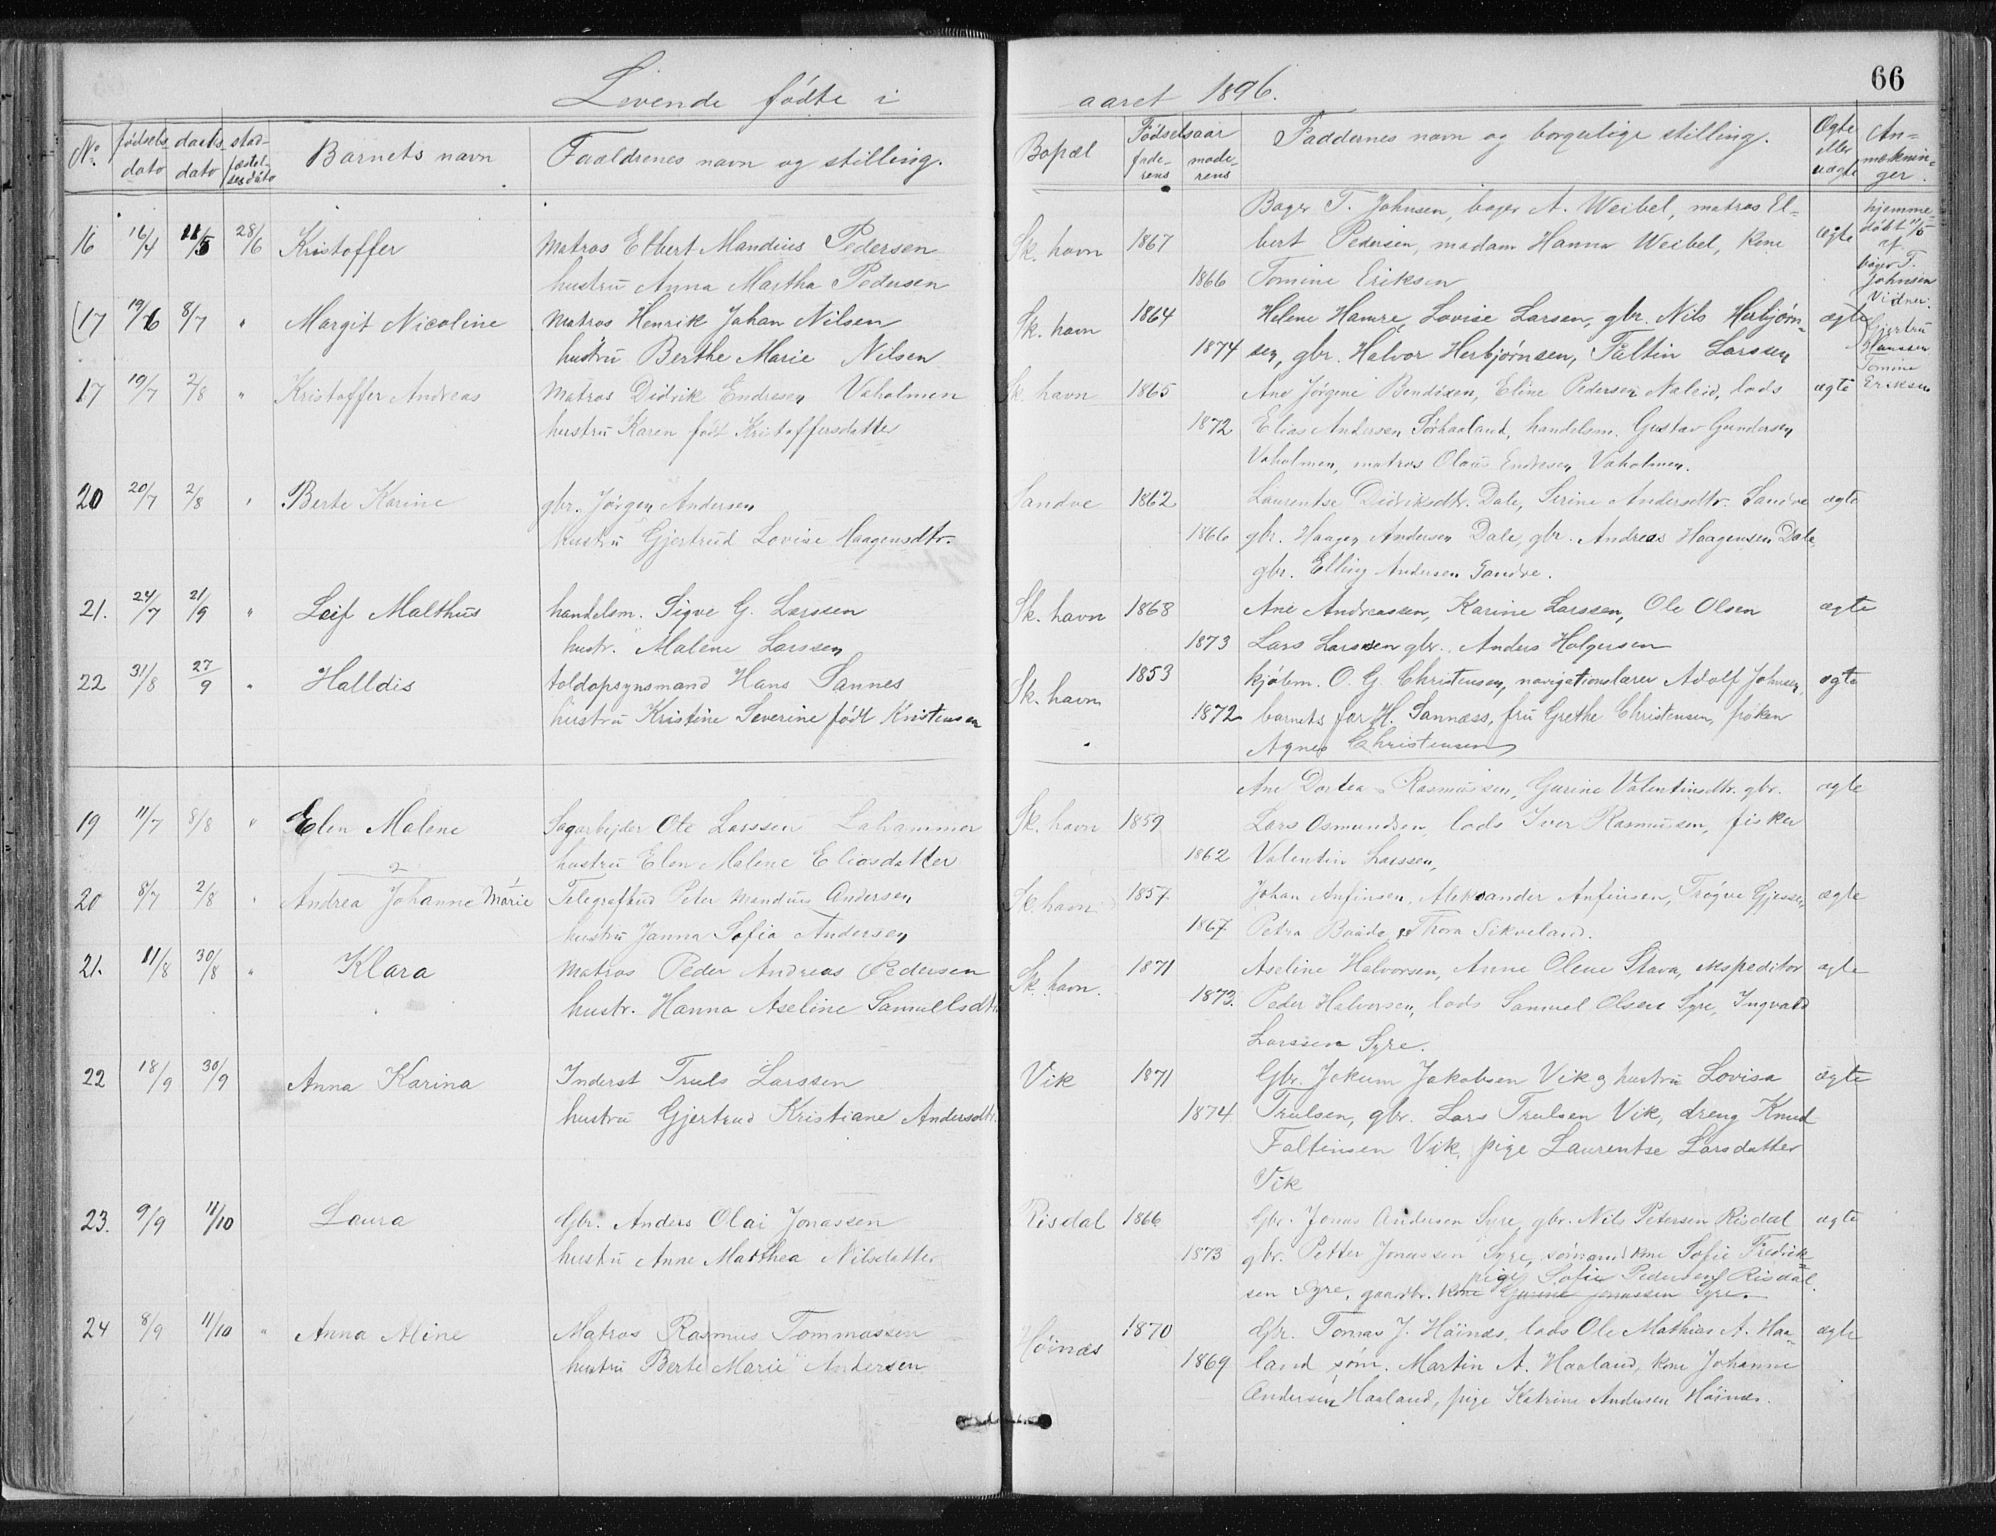 66
Levende fødte i aaret 1896.
No. fødsels dato daabs dato stadfæstelsesdato Barnets navn Foreldrenes navn og stilling. Bopæl Fødselsaar faderens moderens Faddernes navn og borgerlige stilling. Ægte eller uægte Anmærkninger.
Bager T. Johnsen, bager A. Weibel, matros El- hjemme-
16 16/4 11/5 28/6 Kristoffer Matros Elbert Mandius Pedersen Sk. havn 1867 bert Pedersen, madam Hanna Weibel, kone ægte døbt 11/5 af
hustru Anna Martha Pedersen 1866 Tomine Eriksen bager T. Johnsen
17 19/6 8/7 " Margit Nicoline Matros Henrik Johan Nilsen Sk. havn 1864 Helene Hamre, Lovise Larsen, gbr. Nils Herbjørn- ægte Vidner:
hustru Berthe Marie Nilsen 1874 sen, gbr. Halvor Herbjørnsen, Faltin Larssen Gjertru Hanssen Tomine
17 19/7 2/8 " Kristoffer Andreas Matros Didrik Endresen Vaholmen Sk. havn 1865 Ane Jørgine Bendixen, Eline Pedersen Naleid, lods ægte Eriksen
hustru Karen født Kristoffersdatter 1872 Elias Andersen Sørhaaland, handelsm. Gustav Gundersen
Vaholmen, matros Olaus Endresen Vaholmen.
20 20/7 2/8 " Berte Karine gbr. Jørgen Andersen Sandve 1862 Laurentse Didriksdtr. Dale, Serine Andersdtr. Sandve ægte
hustru Gjertrud Lovise Haagensdtr. 1866 gbr. Haagen Andersen Dale, gbr. Andreas Haagensen Dale,
gbr. Elling Andersen Sandve.
21. 24/7 21/9 " Leif Malthus handelsm. Sigve G. Larssen Sk. havn 1868 Ane Andreassen, Karine Larssen, Ole Olsen ægte
hustr. Malene Larssen 1873 Lars Larssen gbr. Anders Holgersen
22 31/8 27/9 " Halldis toldopsynsmand Hans Sannes Sk. havn 1853 kjøbm. O. G. Christensen, navigationslærer Adolf Johnsen, ægte
hustru Kristine Severine født Kristensen 1872 barnets far H. Sannæss, fru Grethe Christensen, frøken
Agnes Christensen
Ane Dortea Rasmussen, Gurine Valentinsdtr. gbr. ægte
19 11/7 8/8 " Elen Malene Sagarbejder Ole Larssen Lahammer Sk. havn 1859 Lars Osmundsen, lods Iver Rasmussen, fisker
hustru Elen Malene Eliasdatter 1862 Valentin Larssen,
2 1
20 8/7 2/8 " Andrea Johanne Marie Telegrafbud Peter Mandius Andersen Sk. havn 1857 Johan Anfinsen, Aleksander Anfinsen, Trøgve Gjessen, ægte
hustru Janna Sofia Andersen 1867 Petra Baade, Thora Sikveland.
21. 11/8 30/8 " Klara Matros Peder Andreas Pedersen Sk. havn. 1871 Aseline Halvorsen, Anne Olene Stava, ekspeditor ægte
hustr. Hanna Aseline Samuelsdtr. 1873. Peder Halvorsen, lods Samuel Olsen Syre, Ingvald
Larssen Syre.
22 18/9 30/9 Anna Karina Inderst Truls Larssen Vik 1871 Gbr. Jokum Jakobsen Vik og hustru Lovisa ægte
hustru Gjertrud Kristiane Andersdtr. 1874. Trulsen, gbr. Lars Trulsen Vik, dreng Knud
Faltinsen Vik, pige Laurentse Larsdatter
Vik
23. 9/9 11/10 Laura Gbr. Anders Olai Jonassen Risdal 1866 Gbr. Jonas Andersen Syre, gbr. Nils Petersen Risdal ægte
hustru Anne Marthea Nilsdatter 1873 gbr. Petter Jonassen Syre, sømand kone Sofie Fredrik-
pige Sofie Pedersen Risdal.
sen Syre, gaardbr. kone Gurine Jonassen Syre.
24 8/9 11/10 " Anna Aline Matros Rasmus Tommassen Høinæs 1870 Gbr. Tomas J. Høinæs, lods Ole Mathias A. Haa- ægte
hustru Berte Marie Andersen 1869 land søm. Martin A. Haaland, kone Johanne
Andersen Haaland, pige Katrine Andersen Høinæs.